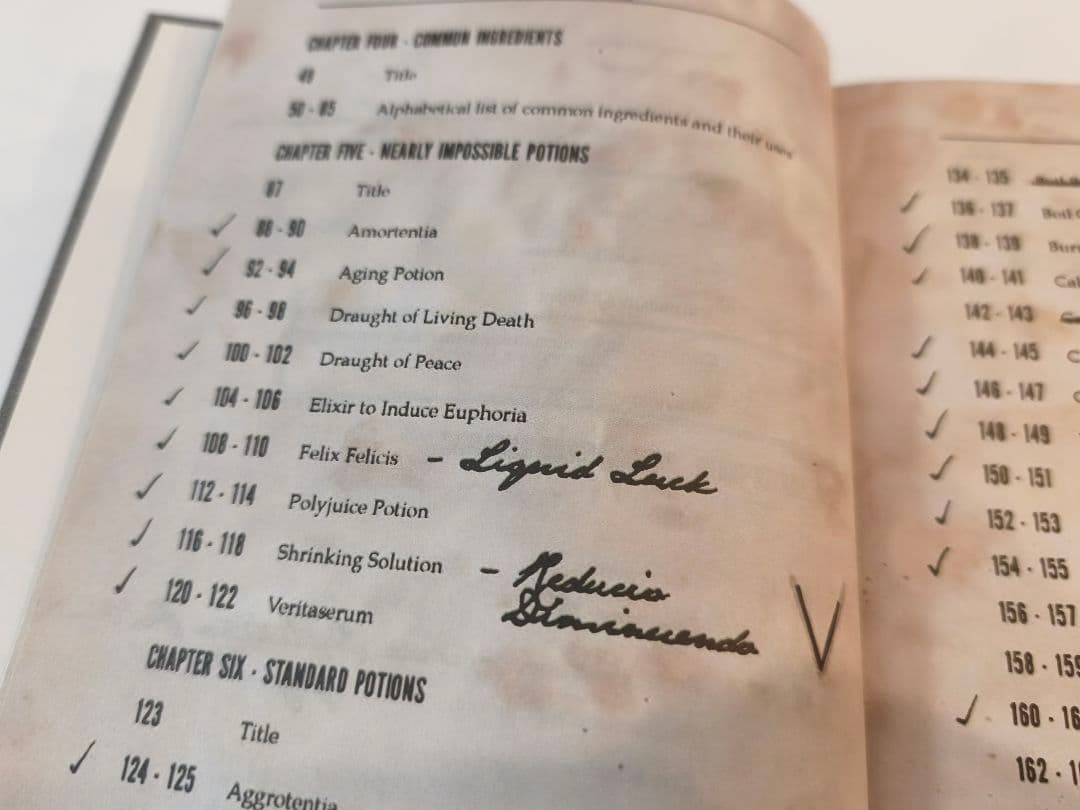 CHAPTER FOUR - COMMON INGREDIENTS
49 Title
50 - 85 Alphabetical list of common ingredients and their uses
CHAPTER FIVE - NEARLY IMPOSSIBLE POTIONS
87 Title
88 - 90 Amortentia
92 - 94 Aging Potion
96 - 98 Draught of Living Death
100 - 102 Draught of Peace
104 - 106 Elixir to Induce Euphoria
108 - 110 Felix Felicis - Liquid Luck
112 - 114 Polyjuice Potion
116 - 118 Shrinking Solution - Reducio
Diminuendo
120 - 122 Veritaserum
CHAPTER SIX - STANDARD POTIONS
123 Title
124 - 125 Aggrotentia
134 - 135
136 - 137
138 - 139
140 - 141
142 - 143
144 - 145
146 - 147
148 - 149
150 - 151
152 - 153
154 - 155
156 - 157
158 - 159
160 - 16
162 - 1